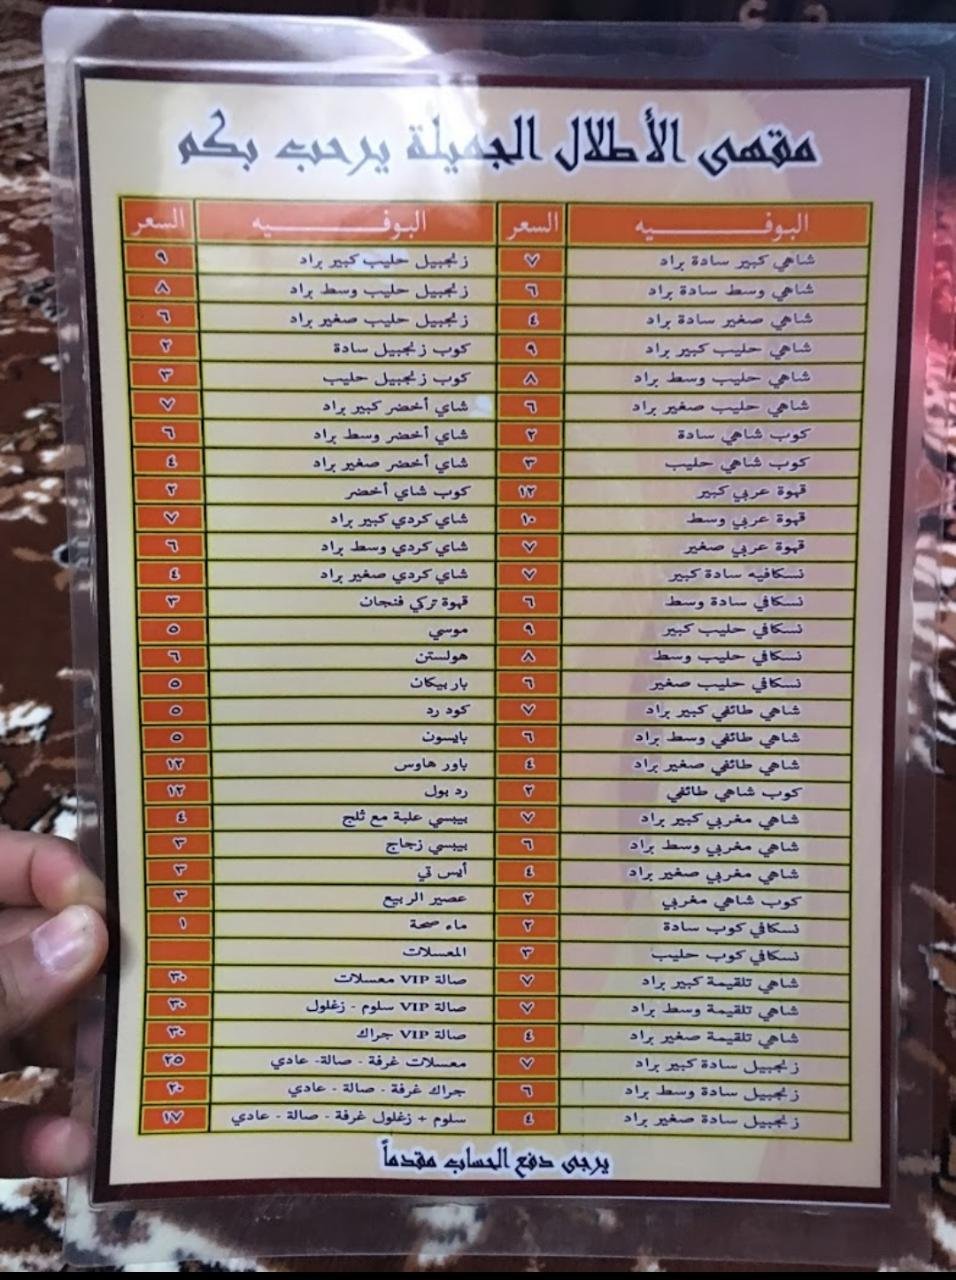 مقهى الأطلال الجميلة يرحب بكم
البوفـــــــيه السعر البوفـــــــيه السعر
شاهي كبير سادة براد ٧ زنجبيل حليب كبير براد ٩
شاهي وسط سادة براد ٦ زنجبيل حليب وسط براد ٨
شاهي صغير سادة براد ٤ زنجبيل حليب صغير براد ٦
شاهي حليب كبير براد ٩ كوب زنجبيل سادة ٢
شاهي حليب وسط براد ٨ كوب زنجبيل حليب ٣
شاهي حليب صغير براد ٦ شاي أخضر كبير براد ٧
كوب شاهي سادة ٢ شاي أخضر وسط براد ٦
كوب شاهي حليب ٣ شاي أخضر صغير براد ٤
قهوة عربي كبير ١٢ كوب شاي أخضر ٢
قهوة عربي وسط ١٠ شاي كردي كبير براد ٧
قهوة عربي صغير ٧ شاي كردي وسط براد ٦
نسكافيه سادة كبير ٧ شاي كردي صغير براد ٤
نسكافي سادة وسط ٦ قهوة تركي فنجان ٣
نسكافي حليب كبير ٩ موسي ٥
نسكافي حليب وسط ٨ هولستن ٦
نسكافي حليب صغير ٦ باربيكان ٥
شاهي طائفي كبير براد ٧ كود رد ٥
شاهي طائفي وسط براد ٦ بايسون ٥
شاهي طائفي صغير براد ٤ باور هاوس ١٢
كوب شاهي طائفي ٢ رد بول ١٢
شاهي مغربي كبير براد ٧ بيبسي علبة مع ثلج ٤
شاهي مغربي وسط براد ٦ بيبسي زجاج ٣
شاهي مغربي صغير براد ٤ أيس تي ٣
كوب شاهي مغربي ٢ عصير الربيع ٣
نسكافي كوب سادة ٢ ماء صحة ١
نسكافي كوب حليب ٣ المعسلات
شاهي تلقيمة كبير براد ٧ صالة VIP معسلات ٣٠
شاهي تلقيمة وسط براد ٧ صالة VIP سلوم - زغلول ٣٠
شاهي تلقيمة صغير براد ٤ صالة VIP جراك ٣٠
زنجبيل سادة كبير براد ٧ معسلات غرفة - صالة- عادي ٢٥
زنجبيل سادة وسط براد ٦ جراك غرفة - صالة - عادي ٢٠
زنجبيل سادة صغير براد ٤ سلوم + زغلول غرفة - صالة - عادي ١٧
يرجى دفع الحساب مقدماً